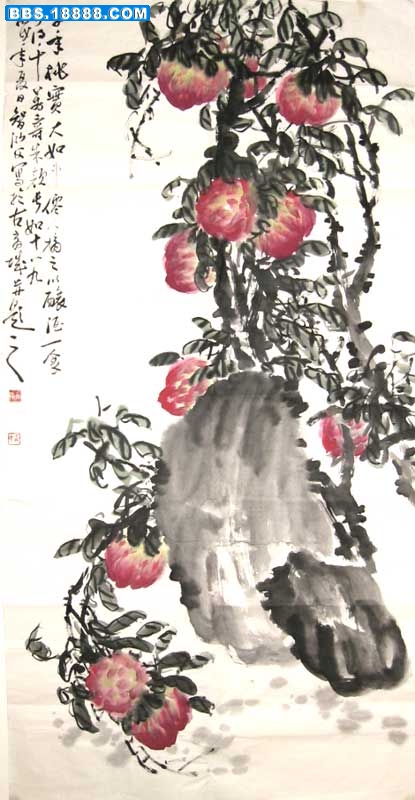 BBS.18888.COM
千年桃實大如斗僊人摘之以釀酒一食
可得千萬壽朱顏長如十八九
年夏日智寫於古城并題之